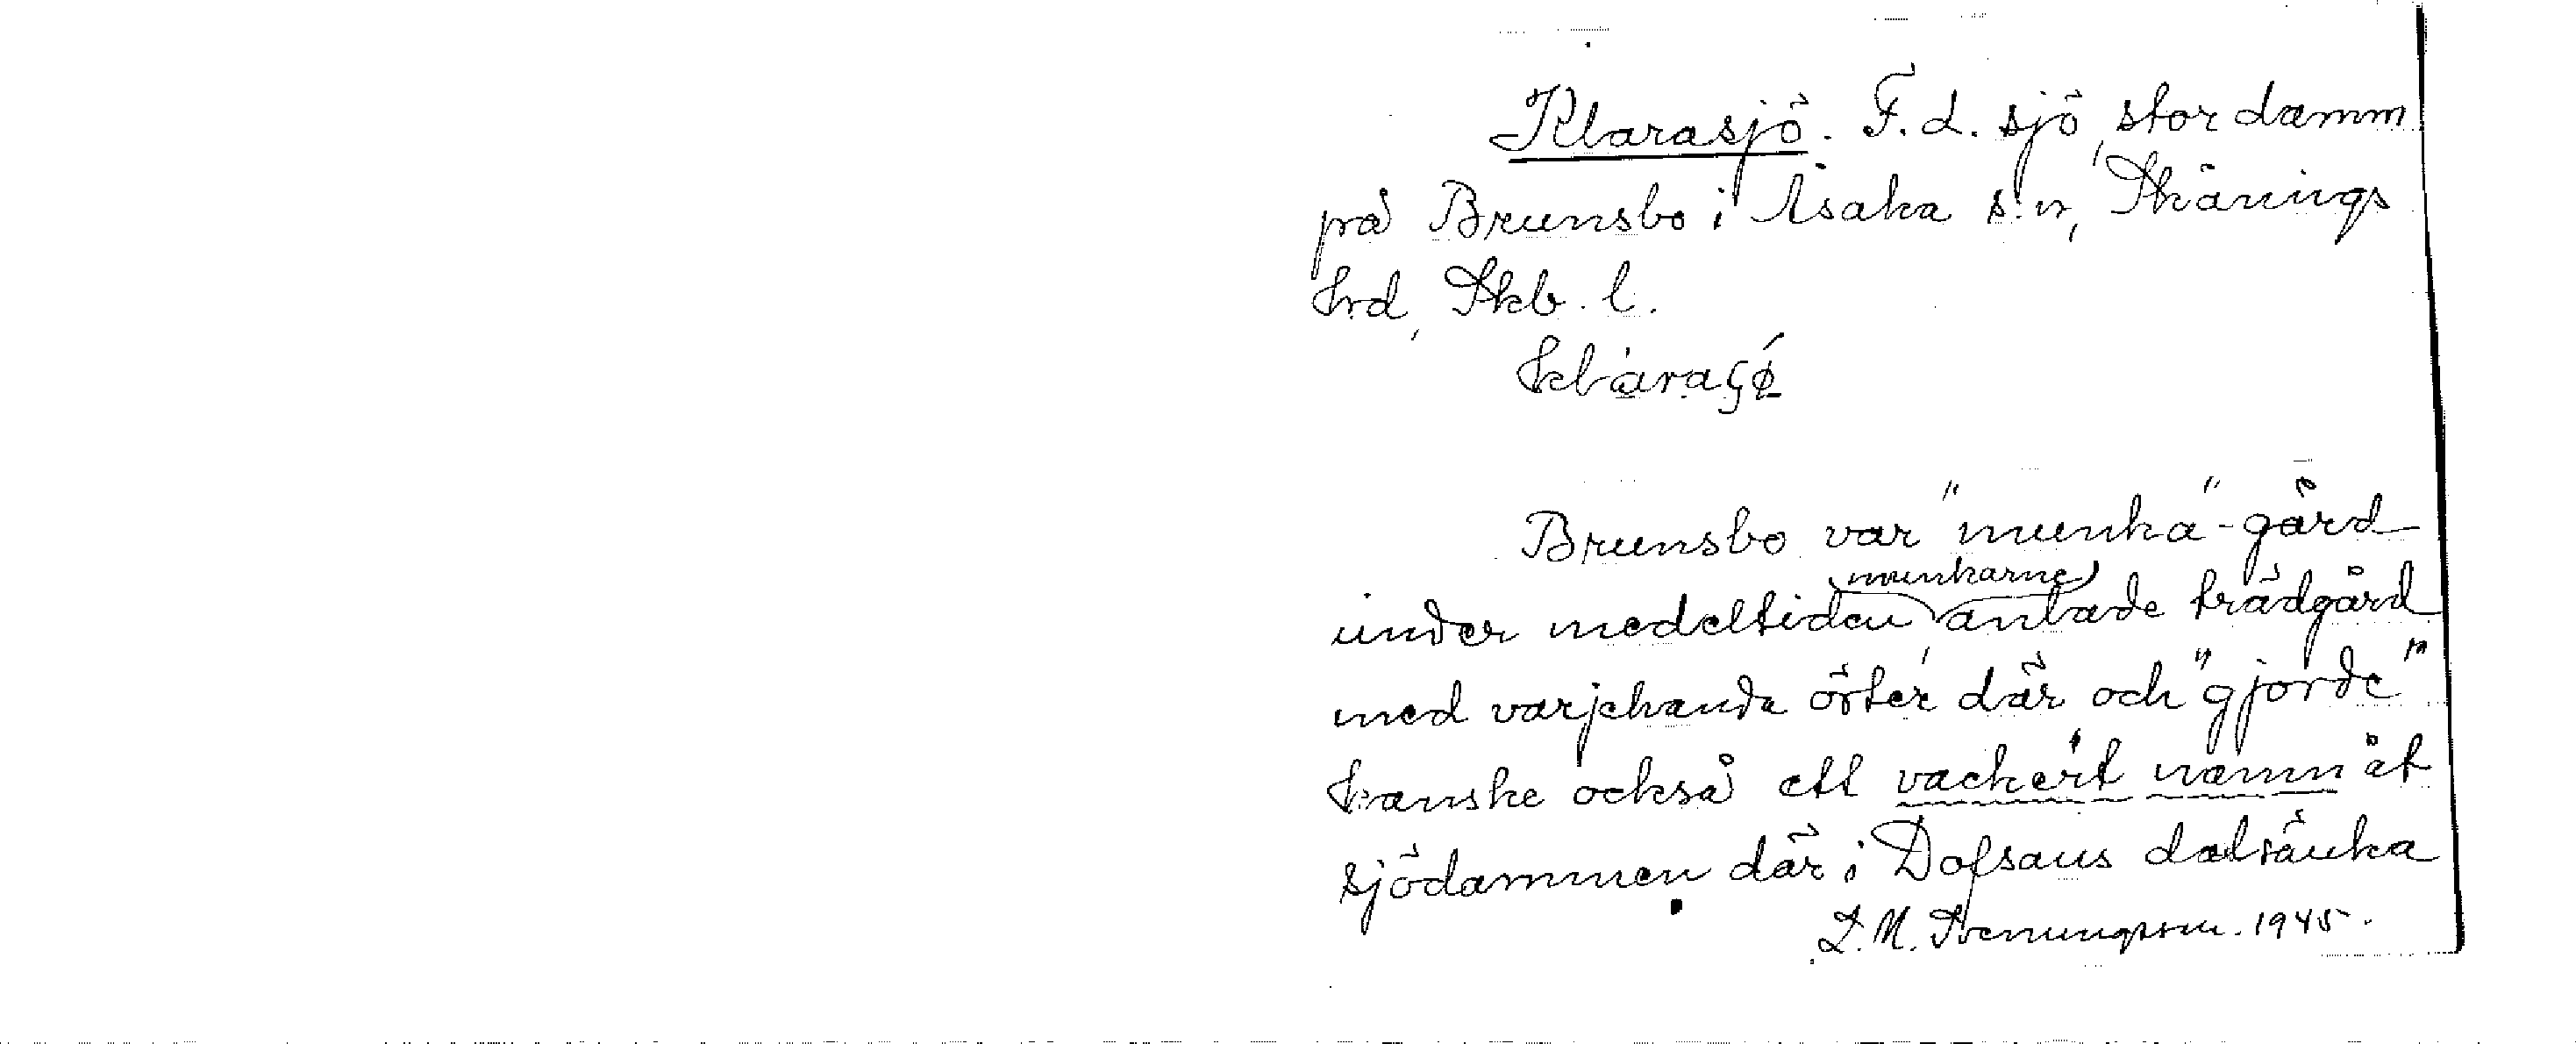 Klarasjö. F.d. sjö, stor damm
på Brunsbo i Åsaka s:n, Skånings
hrd, Skb. l.
Brunsbo var "munka"-gård
under medeltiden, munkarne anlade trädgård
med varjehanda örter där och "gjorde"
kanske också ett vackert namn åt
sjödammen där i Dofsans dalsänka
L. M. Svenungsson. 1945.